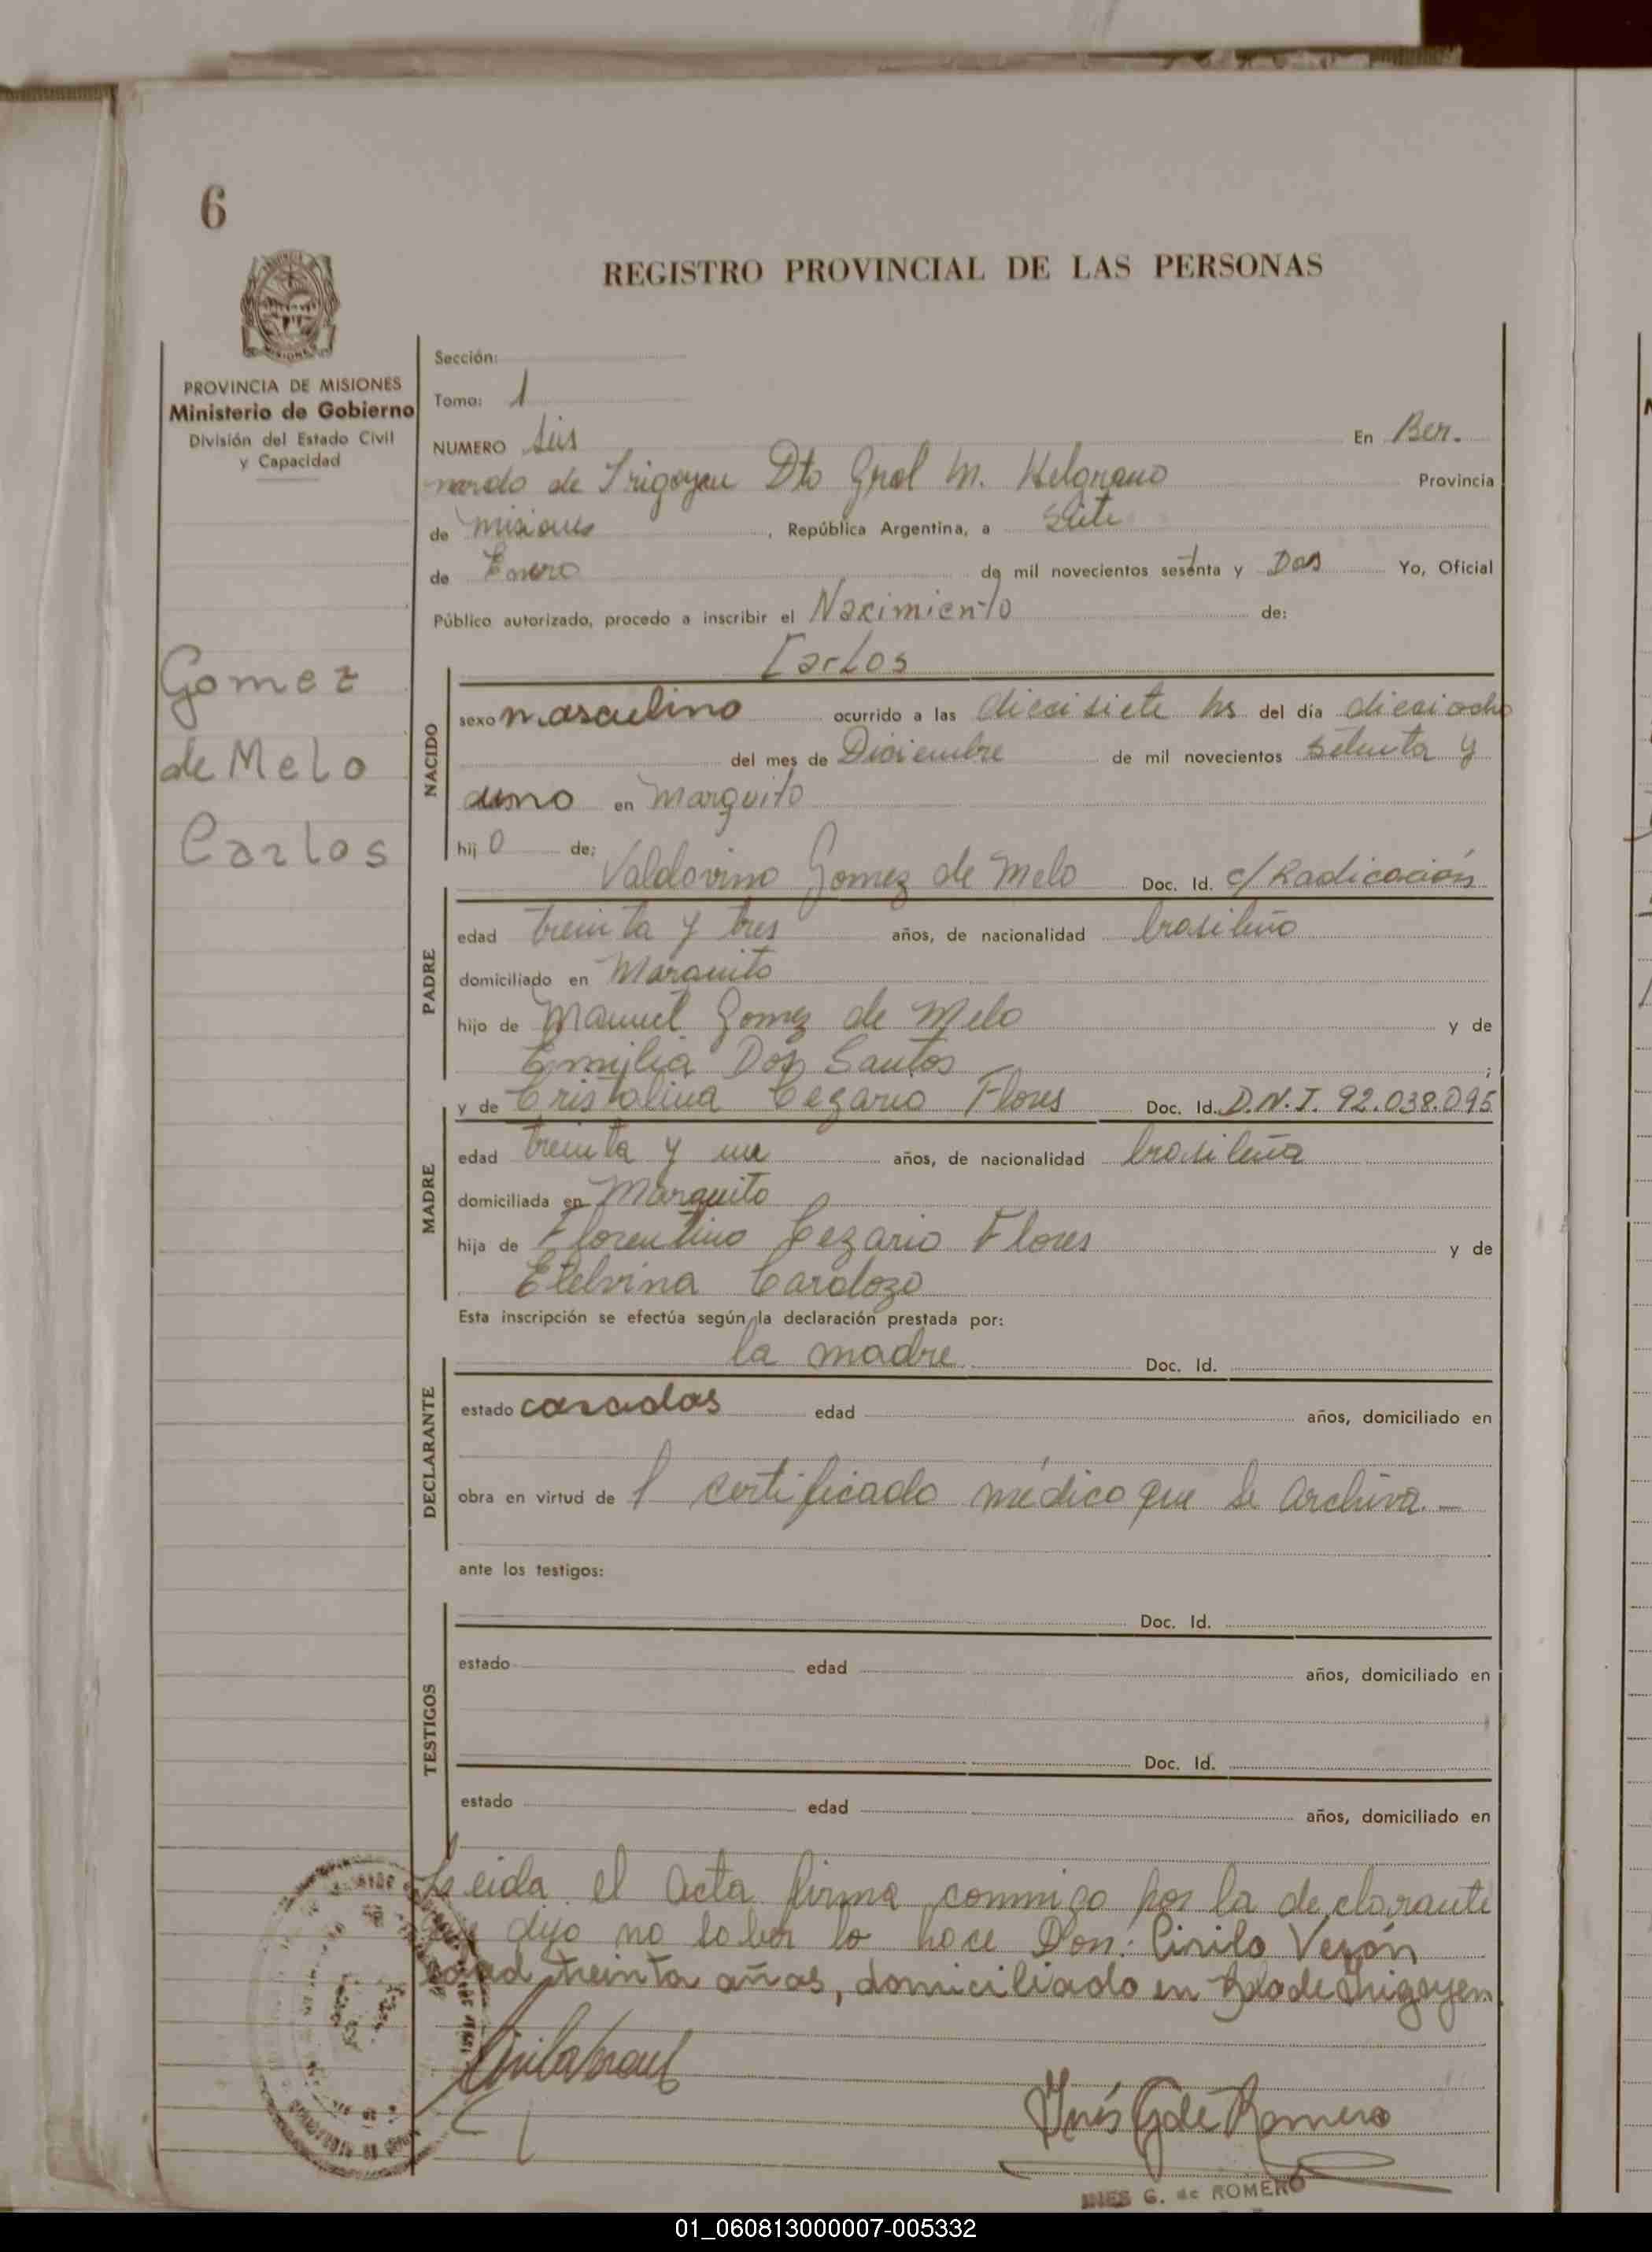 6
REGISTRO PROVINCIAL DE LAS PERSONAS
PROVINCIA DE MISIONES
Ministerio de Gobierno
División del Estado Civil
y Capacidad
Gomez
de Melo
Carlos
Sección:
Tomo: 1
NUMERO Seis En Ber.
nardo de Irigoyen Dto Gral M. Belgrano Provincia
de Misiones, República Argentina, a Siete
de Enero de mil novecientos setenta y Dos Yo, Oficial
Público autorizado, procedo a inscribir el Nacimiento de:
Carlos
NACIDO
sexo masculino ocurrido a las diecisiete hs del día dieciocho
del mes de Diciembre de mil novecientos setenta y
uno en Marquito
hijo de:
Valdovino Gomez de Melo Doc. Id. c/ Radicación
PADRE
edad treinta y tres años, de nacionalidad brasileño
domiciliado en Marquito
hijo de Manuel Gomez de Melo y de
Emilia Dos Santos ;
y de Cristalina Cezario Flores Doc. Id. D.N.I. 92.038.095
MADRE
edad treinta y un años, de nacionalidad brasileña
domiciliada en Marquito
hija de Florentino Cezario Flores y de
Etelvina Cardozo
Esta inscripción se efectúa según la declaración prestada por:
la madre Doc. Id.
DECLARANTE
estado casadas edad años, domiciliado en
obra en virtud de l certificado médico que se archiva.—
ante los testigos:
TESTIGOS
Doc. Id.
estado edad años, domiciliado en
Doc. Id.
estado edad años, domiciliado en
Leida el Acta firma conmigo por la declarante
que dijo no saber lo hace Don: Cirilo Verón
edad treinta años, domiciliado en Bdo de Irigoyen.
Inés G de Romero
INES G. de ROMERO
01_060813000007-005332